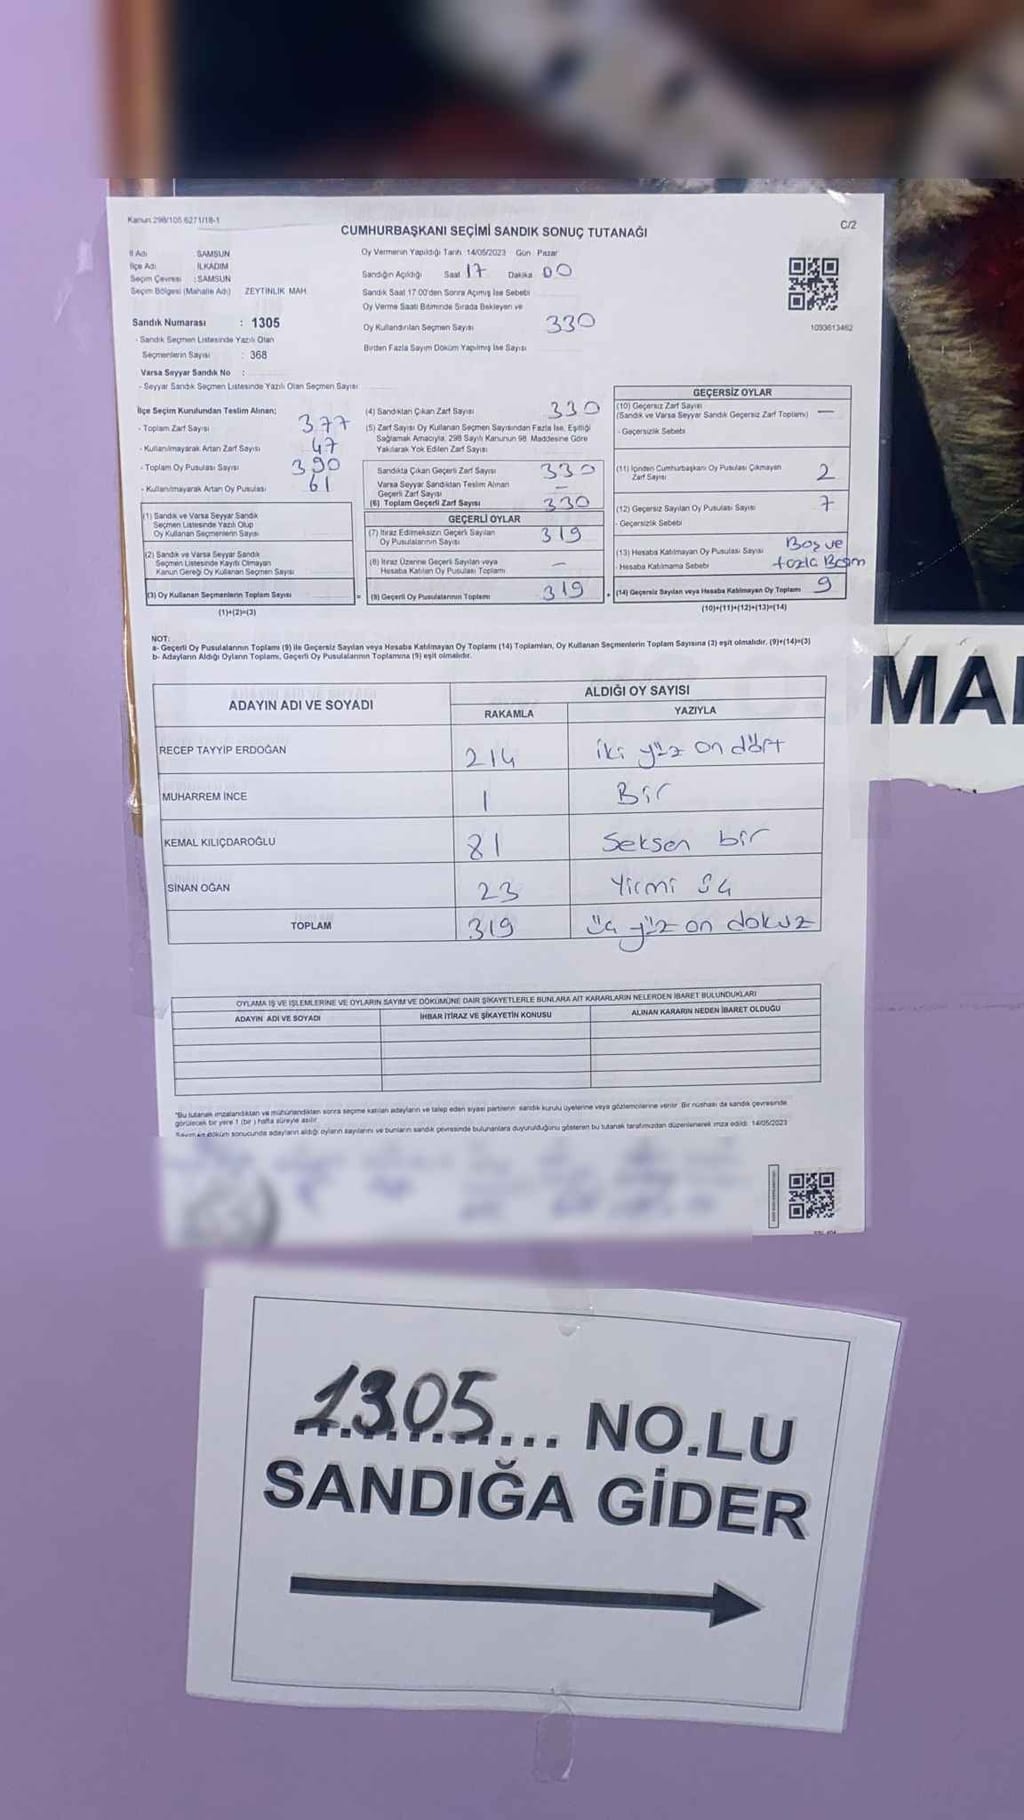 Kanun 298/105 6271/18-1
C/2
CUMHURBAŞKANI SEÇİMİ SANDIK SONUÇ TUTANAĞI
İl Adı SAMSUN
İlçe Adı İLKADIM
Seçim Çevresi : SAMSUN
Seçim Bölgesi (Mahalle Adı) ZEYTİNLİK MAH.
Sandık Numarası : 1305
- Sandık Seçmen Listesinde Yazılı Olan
Seçmenlerin Sayısı : 368
Varsa Seyyar Sandık No :
- Seyyar Sandık Seçmen Listesinde Yazılı Olan Seçmen Sayısı
Oy Vermenin Yapıldığı Tarih 14/05/2023 Gün Pazar
Sandığın Açıldığı Saat 17 Dakika 00
Sandık Saat 17.00'den Sonra Açımış İse Sebebi
Oy Verme Saati Bitiminde Sırada Bekleyen ve
Oy Kullandırılan Seçmen Sayısı 330
Birden Fazla Sayım Döküm Yapılmış İse Sayısı
1093613462
İlçe Seçim Kurulundan Teslim Alınan;
- Toplam Zarf Sayısı 377
- Kullanılmayarak Artan Zarf Sayısı 47
- Toplam Oy Pusulası Sayısı 390
- Kullanılmayarak Artan Oy Pusulası 61
(1) Sandık ve Varsa Seyyar Sandık
Seçmen Listesinde Yazılı Olup
Oy Kullanan Seçmenlerin Sayısı
(2) Sandık ve Varsa Seyyar Sandık
Seçmen Listesinde Kayıtlı Olmayan
Kanun Gereği Oy Kullanan Seçmen Sayısı
(3) Oy Kullanan Seçmenlerin Toplam Sayısı
(1)+(2)=(3)
(4) Sandıktan Çıkan Zarf Sayısı 330
(5) Zarf Sayısı Oy Kullanan Seçmen Sayısından Fazla İse, Eşitliği
Sağlamak Amacıyla, 298 Sayılı Kanunun 98. Maddesine Göre
Yakılarak Yok Edilen Zarf Sayısı
Sandıkta Çıkan Geçerli Zarf Sayısı 330
Varsa Seyyar Sandıktan Teslim Alınan
Geçerli Zarf Sayısı —
(6) Toplam Geçerli Zarf Sayısı 330
GEÇERLİ OYLAR
(7) İtiraz Edilmeksizin Geçerli Sayılan
Oy Pusulalarının Sayısı 319
(8) İtiraz Üzerine Geçerli Sayılan veya
Hesaba Katılan Oy Pusulası Toplamı —
= (9) Geçerli Oy Pusulalarının Toplamı 319
GEÇERSİZ OYLAR
(10) Geçersiz Zarf Sayısı
(Sandık ve Varsa Seyyar Sandık Geçersiz Zarf Toplamı) —
- Geçersizlik Sebebi
(11) İçinden Cumhurbaşkanı Oy Pusulası Çıkmayan
Zarf Sayısı 2
(12) Geçersiz Sayılan Oy Pusulası Sayısı 7
- Geçersizlik Sebebi
(13) Hesaba Katılmayan Oy Pusulası Sayısı Boş ve
- Hesaba Katılmama Sebebi fazla Basım
+ (14) Geçersiz Sayılan veya Hesaba Katılmayan Oy Toplamı 9
(10)+(11)+(12)+(13)=(14)
NOT:
a- Geçerli Oy Pusulalarının Toplamı (9) ile Geçersiz Sayılan veya Hesaba Katılmayan Oy Toplamı (14) Toplamları, Oy Kullanan Seçmenlerin Toplam Sayısına (3) eşit olmalıdır. (9)+(14)=(3)
b- Adayların Aldığı Oyların Toplamı, Geçerli Oy Pusulalarının Toplamına (9) eşit olmalıdır.
ADAYIN ADI VE SOYADI
ALDIĞI OY SAYISI
RAKAMLA YAZIYLA
RECEP TAYYİP ERDOĞAN 214 iki yüz on dört
MUHARREM İNCE 1 Bir
KEMAL KILIÇDAROĞLU 81 Seksen bir
SİNAN OĞAN 23 Yirmi üç
TOPLAM 319 üç yüz on dokuz
OYLAMA İŞ VE İŞLEMLERİNE VE OYLARIN SAYIM VE DÖKÜMÜNE DAİR ŞİKAYETLERLE BUNLARA AİT KARARLARIN NELERDEN İBARET BULUNDUKLARI
ADAYIN ADI VE SOYADI İHBAR İTİRAZ VE ŞİKAYETİN KONUSU ALINAN KARARIN NEDEN İBARET OLDUĞU
"Bu tutanak imzalandıktan ve mühürlendikten sonra seçime katılan adayların ve talep eden siyasi partilerin sandık kurulu üyelerine veya gözlemcilerine verilir. Bir nüshası da sandık çevresinde
görülecek bir yere 1 (bir) hafta süreyle asılır.
Sayım ve döküm sonucunda adayların aldığı oyların sayılarını ve bunların sandık çevresinde bulunanlara duyurulduğunu gösteren bu tutanak tarafımızdan düzenlenerek imza edildi. 14/05/2023
MA
1305... NO.LU
SANDIĞA GİDER